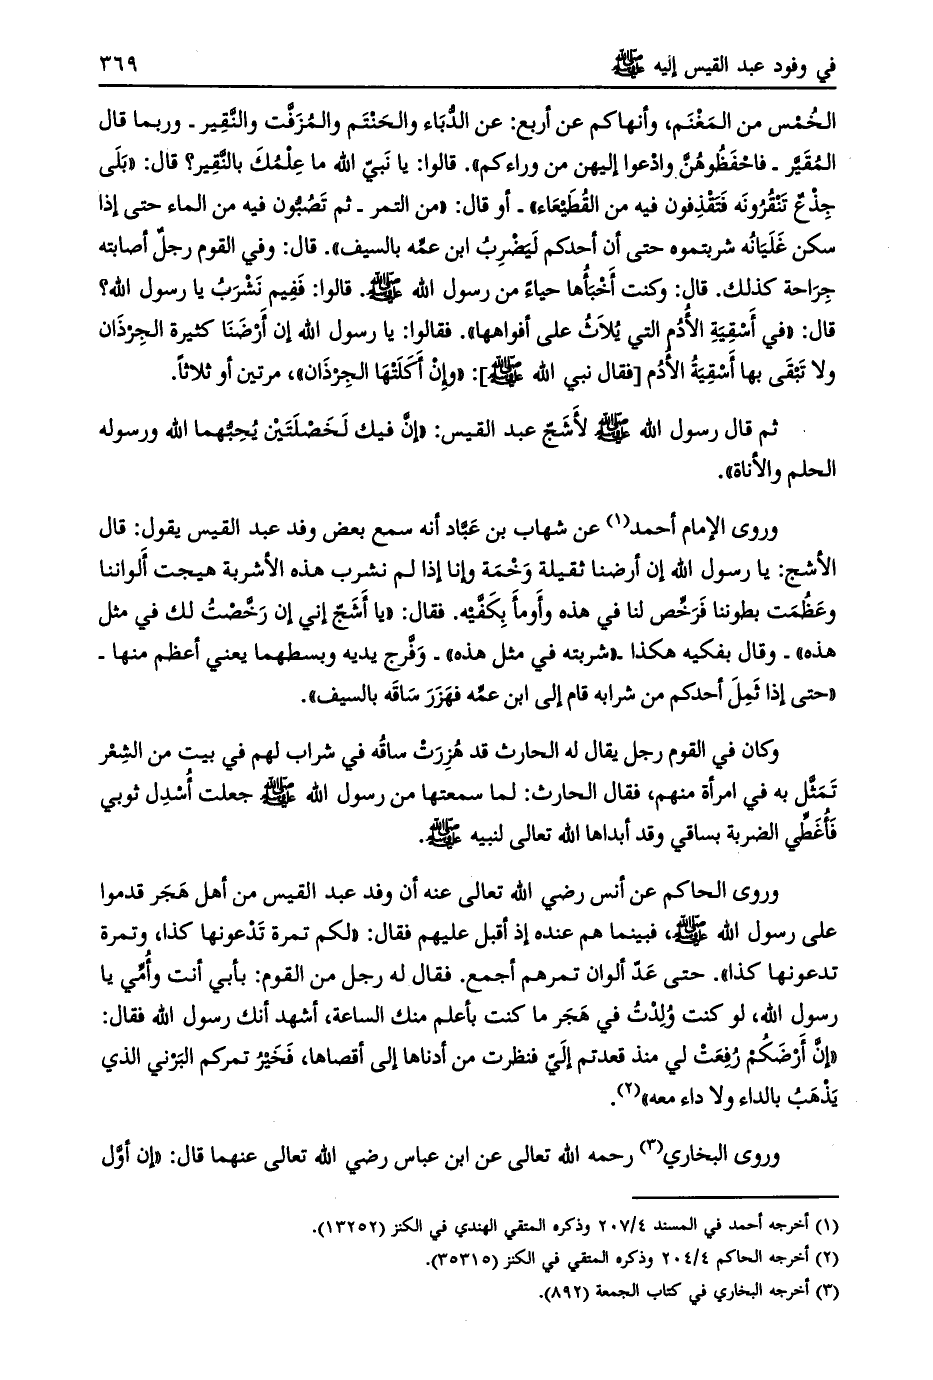 في وفود عبد القيس إليه ﷺ ٣٦٩
الخُمْس من المَغْنَم، وأنهاكم عن أربع: عن الدُّبَاء والحَنْتَم والمُزَفَّت والنَّقِير ـ وربما قال
المُقَيَّر ـ فاحْفَظُوهُنَّ وادْعوا إليهن من وراءكم». قالوا: يا نَبيّ الله ما عِلْمُكَ بالنَّقِير؟ قال: «بَلَى
جِذْعٌ تَنْقُرُونَه فَتَقْذِفون فيه من القُطَيْعَاء» ـ أو قال: «من التمر ـ ثم تَصُبُّون فيه من الماء حتى إذا
سكن غَلَيَانُه شربتموه حتى أن أحدكم لَيَضْرِبُ ابن عمَّه بالسيف». قال: وفي القوم رجلٌ أصابته
جِرَاحة كذلك. قال: وكنت أَخْبَأُها حياءً من رسول الله ﷺ. قالوا: فَفِيم نَشْرَبُ يا رسول الله؟
قال: «في أَسْقِيَةِ الأُدُم التي يُلاَثُ على أفواهها». فقالوا: يا رسول الله إن أَرْضَنَا كثيرة الجِرْذَان
ولا تَبْقَى بها أَسْقِيَةُ الأُدُم [فقال نبي الله ﷺ]: «وإنْ أَكَلَتْهَا الجِرْذَان»، مرتين أو ثلاثاً.
ثم قال رسول الله ﷺ لأَشَجّ عبد القيس: «إنَّ فيك لَخَصْلَتَيْن يُحِبُّهما الله ورسوله
الحلم والأناة».
وروى الإمام أحمد(١) عن شهاب بن عَبَّاد أنه سمع بعض وفد عبد القيس يقول: قال
الأشج: يا رسول الله إن أرضنا ثقيلة وَخْمَة وإنا إذا لم نشرب هذه الأشربة هيجت أَلواننا
وعَظُمَت بطوننا فَرَخِّص لنا في هذه وأَومأ بِكَفَّيْه. فقال: «يا أَشَجّ إني إن رَخَّصْتُ لك في مثل
هذه» ـ وقال بفكيه هكذا ـ«شربته في مثل هذه» ـ وَفَّرج يديه وبسطهما يعني أعظم منها ـ
«حتى إذا ثَمِلَ أحدكم من شرابه قام إلى ابن عمَّه فهَزَرَ سَاقَه بالسيف».
وكان في القوم رجل يقال له الحارث قد هُزِرَتْ ساقُه في شراب لهم في بيت من الشِعْر
تَمَثَّل به في امرأة منهم، فقال الحارث: لما سمعتها من رسول الله ﷺ جعلت أُسْدِل ثوبي
فَأُغَطِّي الضربة بساقي وقد أبداها الله تعالى لنبيه ﷺ.
وروى الحاكم عن أنس رضي الله تعالى عنه أن وفد عبد القيس من أهل هَجَر قدموا
على رسول الله ﷺ، فبينما هم عنده إذ أقبل عليهم فقال: «لكم تمرة تَدْعونها كذا، وتمرة
تدعونها كذا». حتى عَدّ ألوان تمرهم أجمع. فقال له رجل من القوم: بأبي أنت وأُمِّي يا
رسول الله، لو كنت وُلِدْتُ في هَجَر ما كنت بأعلم منك الساعة، أشهد أنك رسول الله فقال:
«إنَّ أَرْضَكُمْ رُفِعَتْ لي منذ قعدتم إلَيّ فنظرت من أدناها إلى أقصاها، فَخَيْرُ تمركم البَرْني الذي
يَذْهَبُ بالداء ولا داء معه»(٢).
وروى البخاري(٣) رحمه الله تعالى عن ابن عباس رضي الله تعالى عنهما قال: «إن أوَّل
(١) أخرجه أحمد في المسند ٢٠٧/٤ وذكره المتقي الهندي في الكنز (١٣٢٥٢).
(٢) أخرجه الحاكم ٢٠٤/٤ وذكره المتقي في الكنز (٣٥٣١٥).
(٣) أخرجه البخاري في كتاب الجمعة (٨٩٢).